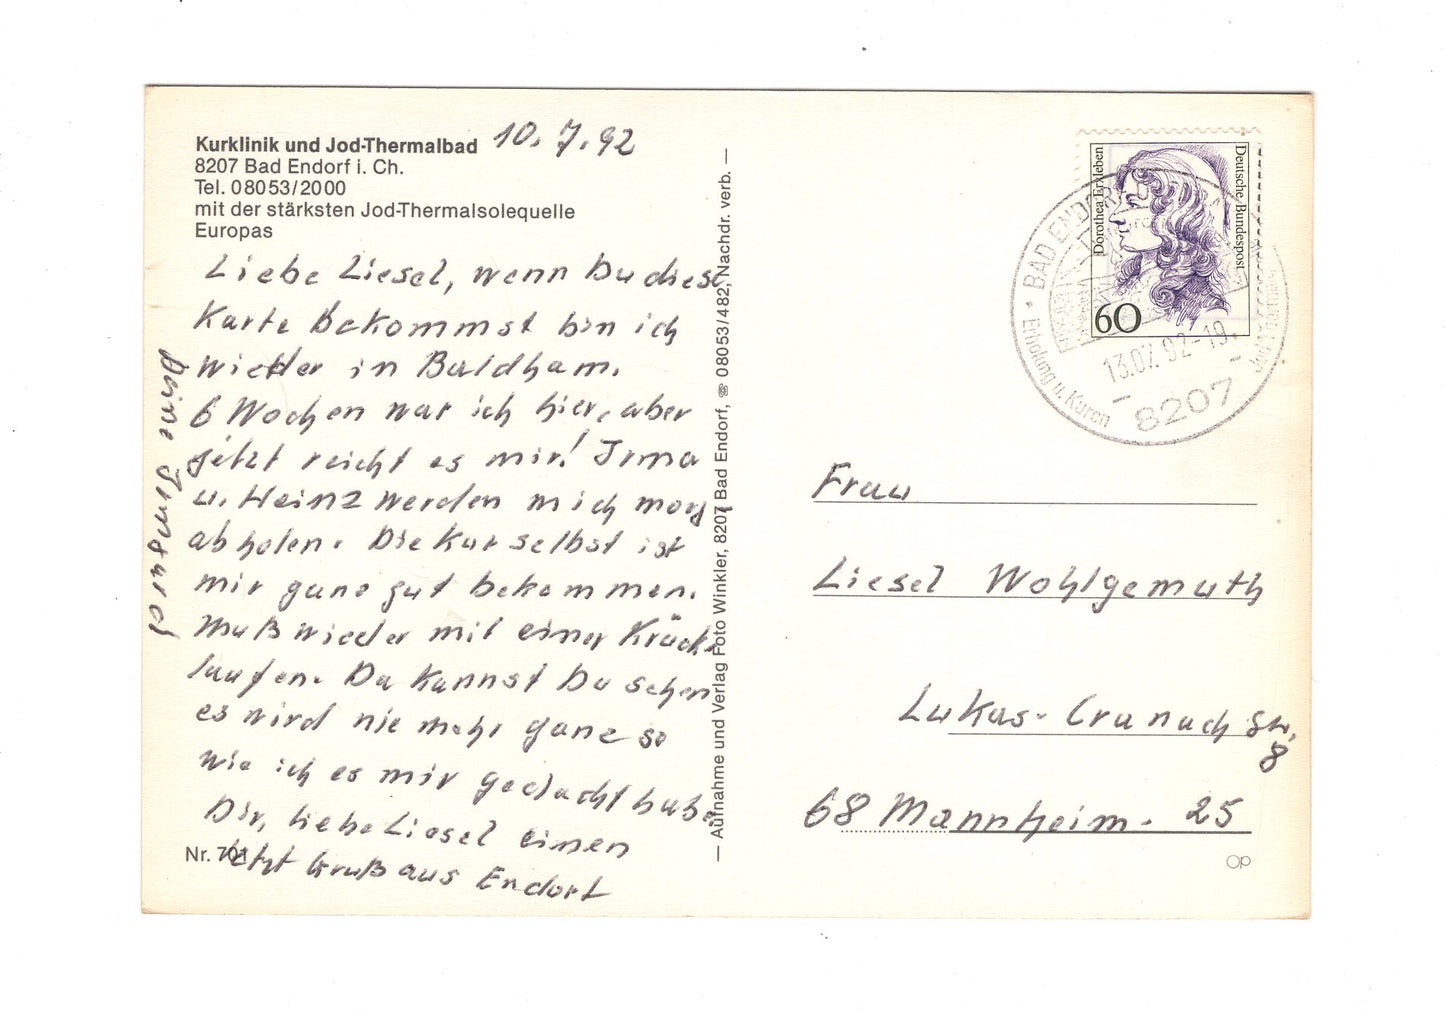 Kurklinik und Jod-Thermalbad
8207 Bad Endorf i. Ch.
Tel. 08053/2000
mit der stärksten Jod-Thermalsolequelle
Europas
10. 7. 92
Liebe Liesel, wenn Du diese
Karte bekommst bin ich
wieder in Baldham.
6 Wochen war ich hier, aber
jetzt reicht es mir! Irma
u. Heinz werden mich morg
abholen. Die Kur selbst ist
mir ganz gut bekommen.
Muß wieder mit einer Krücke
laufen. Da kannst Du sehen
es wird nie mehr ganz so
wie ich es mir gedacht habe
Dir, liebe Liesel einen
letzt Gruß aus Endorf
Deine Irmgard
Nr. 701
— Aufnahme und Verlag Foto Winkler, 8207 Bad Endorf, ☎ 08053/482, Nachdr. verb. —
Deutsche Bundespost
Dorothea Erxleben
60
* BAD ENDORF
Erholung u. Kuren
13.07.92-19
8207
Frau
Liesel Wohlgemuth
Lukas-Cranach Str.
8
68 Mannheim - 25